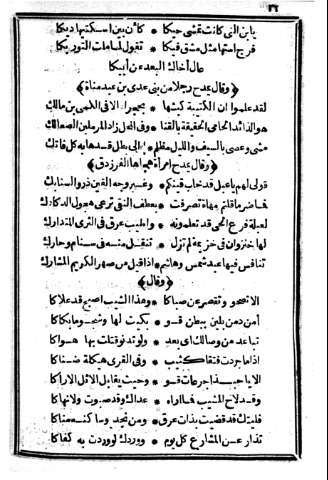 ٢٦
يا بن التي كانت تمشي حيكا • كأن بين اسكتيها ديكا
فرج امتها مثل مشق فيكا • تقول لما مات التوريكا
عال أخاك البعد عن أبيكا
﴿وقال يمدح رجلا من بني عدي بن عبد مناة﴾
لقد علموا ان الكتيبة كبشها • بن مالك
هو الذائد الحامي الحقيقة بالقنا • وفي المحل زاد المرملين الصعالك
مشى وعصى بالسيف والليل مظلم • إلى بطل قد هابه كل فاتك
﴿وقال يمدح امرأة الفرزدق﴾
قولي لهم يا عبل قد خاب قينكم • وغبر وجه القين ذرو السنابك
فما ضر ما قلتم مهاة تصرفت • بعطف النقى ترعى هجول الدكادك
لعبلة فرع الحى قد تعلمونه • واطيب عرق في الثرى المتدارك
لها خنزوان في خزيمة لم تزل • تنقل منه في سنام وحارك
تنافس فيها عبد شمس وهاشم • اذا قيل من صهر الكريم المشارك
﴿وقال﴾
الا تصحو وتقصر عن صباكا • وهذا الشيب اصبح قد علاكا
أمن دمن بلين ببطن قو • بكيت لها وشجو ما بكاكا
تباعد من وصالك اى بعد • ولو تدنو قتلت بها هواكا
اذا ما جردت فنقا كثيب • وفي القرى هيكلة ضناكا
الا يا حبذا جرعات قو • وحيث يقابل الاثل الاراكا
وقد لاح المشيب فما اراه • عداك وقد صبوت ولا نهاكا
فليتك قد قضيت بذات عرق • ومن نجد وساكنه مناكا
تذاد عن المشارع كل يوم • ووردك لو وردت به كفاكا